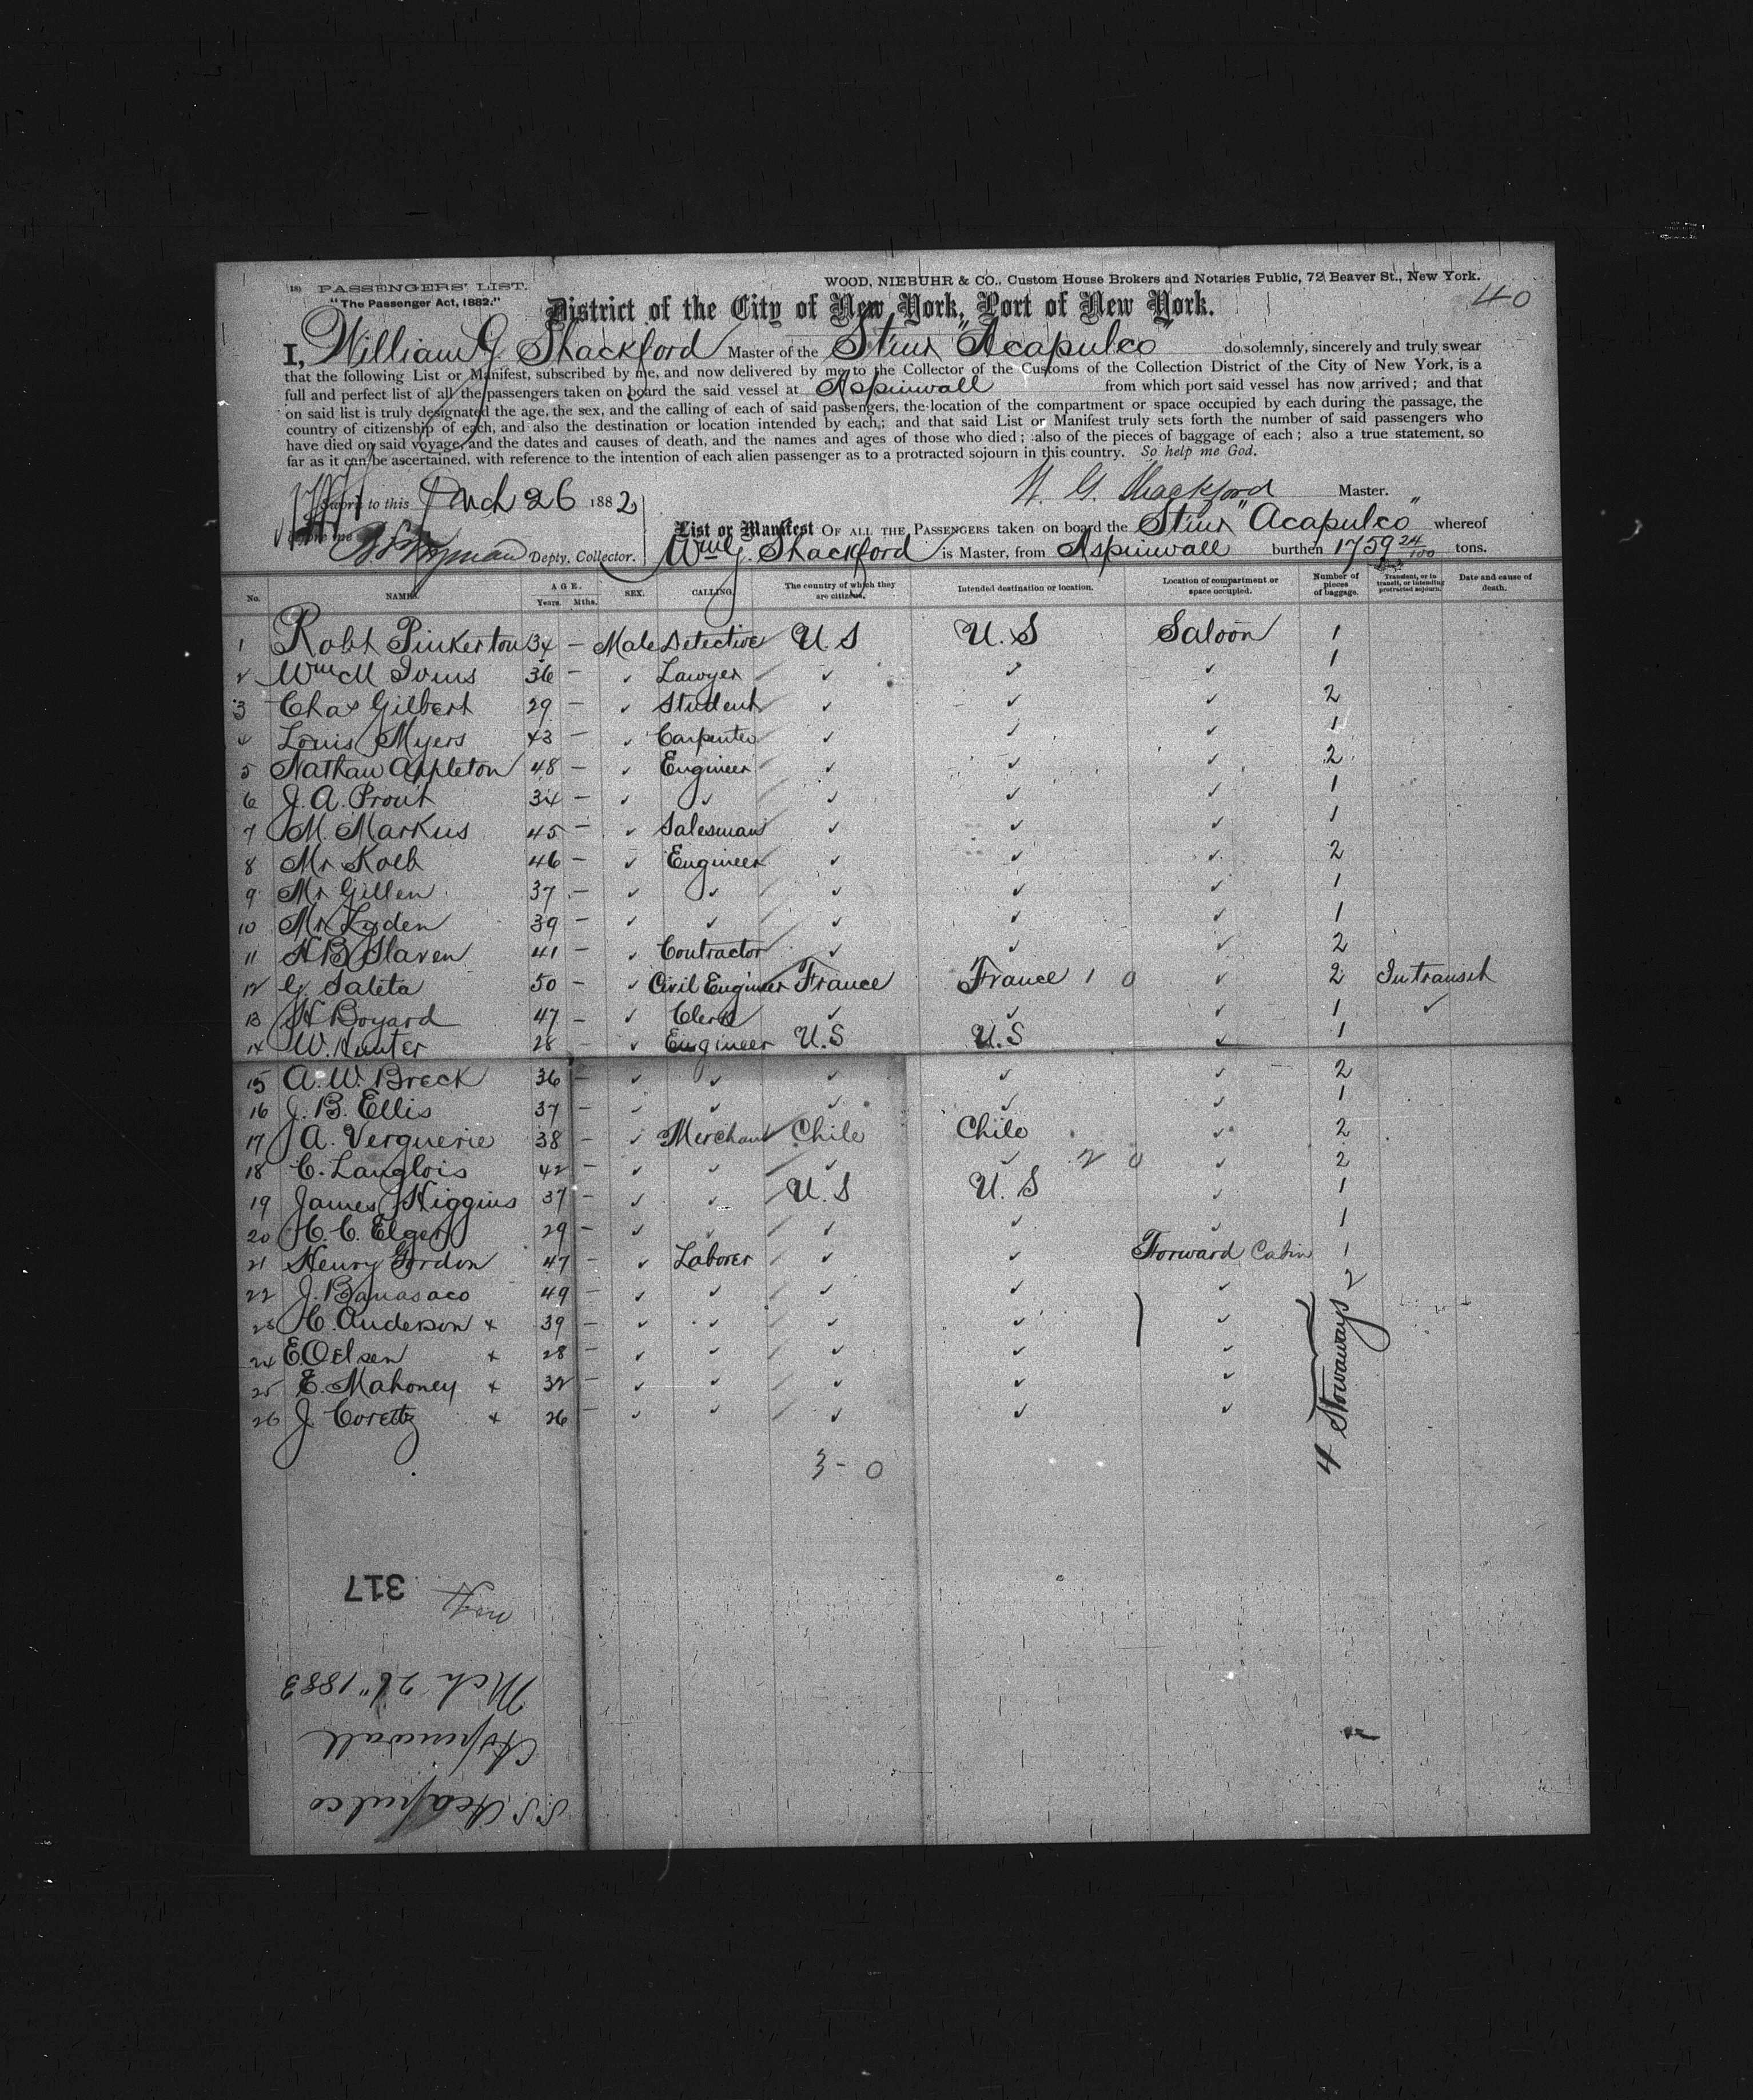 18) PASSENGERS' LIST. WOOD, NIEBUHR & CO., Custom House Brokers and Notaries Public, 72 Beaver St., New York.
"The Passenger Act, 1882."
40
District of the City of New York, Port of New York.
I, William G Shackford Master of the Stmr "Acapulco" do solemnly, sincerely and truly swear
that the following List or Manifest, subscribed by me, and now delivered by me to the Collector of the Customs of the Collection District of the City of New York, is a
full and perfect list of all the passengers taken on board the said vessel at Aspinwall from which port said vessel has now arrived; and that
on said list is truly designated the age, the sex, and the calling of each of said passengers, the location of the compartment or space occupied by each during the passage, the
country of citizenship of each, and also the destination or location intended by each; and that said List or Manifest truly sets forth the number of said passengers who
have died on said voyage, and the dates and causes of death, and the names and ages of those who died; also of the pieces of baggage of each; also a true statement, so
far as it can be ascertained, with reference to the intention of each alien passenger as to a protracted sojourn in this country. So help me God.
Sworn to this Mch 26 1882 W. G. Shackford Master.
before me Depty. Collector.
List or Manifest OF ALL THE PASSENGERS taken on board the Stmr "Acapulco" whereof
Wm G. Shackford is Master, from Aspinwall burthen 1759 24/100 tons.
No. NAMES. AGE. Years. Mths. SEX. CALLING. The country of which they are citizens. Intended destination or location. Location of compartment or space occupied. Number of pieces of baggage. Transient, or in transit, or intending protracted sojourn. Date and cause of death.
1 Robt Pinkerton 34 – Male Detective U.S U.S Saloon 1
2 Wm M Ivins 36 – ✓ Lawyer ✓ ✓ ✓ 1
3 Chas Gilbert 29 – ✓ Student ✓ ✓ ✓ 2
4 Louis Myers 43 – ✓ Carpenter ✓ ✓ ✓ 1
5 Nathan Appleton 48 – ✓ Engineer ✓ ✓ ✓ 2
6 J. A. Prout 34 – ✓ ✓ ✓ ✓ ✓ 1
7 M. Markus 45 – ✓ Salesman ✓ ✓ ✓ 1
8 Mr Kolb 46 – ✓ Engineer ✓ ✓ ✓ 2
9 Mr Gillen 37 – ✓ ✓ ✓ ✓ ✓ 1
10 Mr Lyden 39 – ✓ ✓ ✓ ✓ ✓ 1
11 H B Slaven 41 – ✓ Contractor ✓ ✓ ✓ 2
12 G Saleta 50 – ✓ Civil Engineer France France 1 0 ✓ 2 In transit
13 H Boyard 47 – ✓ Clerk ✓ ✓ ✓ 1 ✓
14 W. Hunter 28 – ✓ Engineer U.S U.S ✓ 1
15 A. W. Breck 36 – ✓ ✓ ✓ ✓ ✓ 2
16 J. B. Ellis 37 – ✓ ✓ ✓ ✓ ✓ 1
17 A. Verguerie 38 – ✓ Merchant Chile Chile ✓ 2
18 C. Langlois 42 – ✓ ✓ ✓ ✓ 2 0 ✓ 2
19 James Higgins 37 – ✓ ✓ U.S U.S ✓ 1
20 H. C. Elger 29 – ✓ ✓ ✓ ✓ ✓ 1
21 Henry Gordon 47 – ✓ Laborer ✓ ✓ Forward Cabin 1
22 J. Banasaco 49 – ✓ ✓ ✓ ✓ ✓ 2
23 C. Anderson x 39 – ✓ ✓ ✓ ✓ ✓
24 E. Oelsen x 28 – ✓ ✓ ✓ ✓ ✓
25 E. Mahoney x 32 – ✓ ✓ ✓ ✓ ✓
26 J. Coretty x 26 – ✓ ✓ ✓ ✓ ✓
4 Stowaways
3 - 0
317
Mch 26" 1883
Aspinwall
S.S. Acapulco